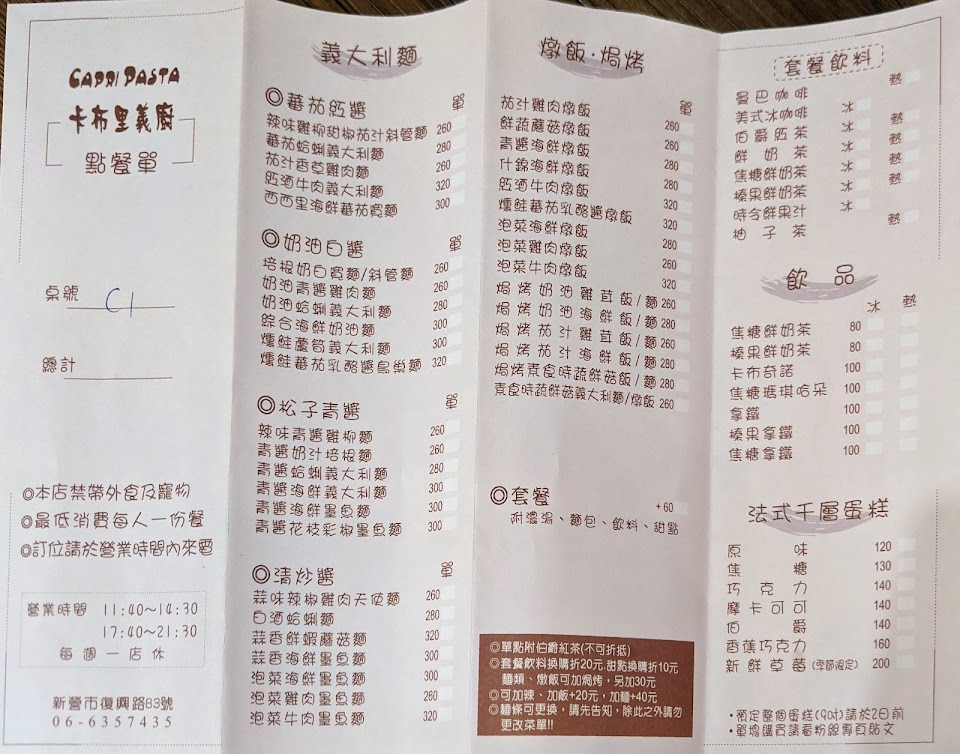 CAPRI PASTA
卡布里義廚
點餐單
桌號 C1
總計
◎本店禁帶外食及寵物
◎最低消費每人一份餐
◎訂位請於營業時間內來電
營業時間 11:40~14:30
17:40~21:30
每週一店休
新營市復興路83號
06-6357435
義大利麵
◎蕃茄紅醬 單
辣味雞柳甜椒茄汁斜管麵 260
蕃茄蛤蜊義大利麵 280
茄汁香草雞肉麵 260
紅酒牛肉義大利麵 320
西西里海鮮蕃茄寬麵 300
◎奶油白醬 單
培根奶白寬麵/斜管麵 260
奶油青醬雞肉麵 260
奶油蛤蜊義大利麵 280
綜合海鮮奶油麵 300
燻鮭蘆筍義大利麵 300
燻鮭蕃茄乳酪醬鳥巢麵 320
◎松子青醬 單
辣味青醬雞柳麵 260
青醬奶汁培根麵 260
青醬蛤蜊義大利麵 280
青醬海鮮義大利麵 300
青醬海鮮墨魚麵 300
青醬花枝彩椒墨魚麵 300
◎清炒醬 單
蒜味辣椒雞肉天使麵 260
白酒蛤蜊麵 280
蒜香鮮蝦蘑菇麵 320
蒜香海鮮墨魚麵 300
泡菜海鮮墨魚麵 300
泡菜雞肉墨魚麵 260
泡菜牛肉墨魚麵 320
燉飯·焗烤
單
茄汁雞肉燉飯 260
鮮蔬蘑菇燉飯 260
青醬海鮮燉飯 280
什錦海鮮燉飯 280
紅酒牛肉燉飯 320
燻鮭蕃茄乳酪醬燉飯 320
泡菜海鮮燉飯 280
泡菜雞肉燉飯 260
泡菜牛肉燉飯 320
焗烤奶油雞茸飯/麵 260
焗烤奶油海鮮飯/麵 280
焗烤茄汁雞茸飯/麵 260
焗烤茄汁海鮮飯/麵 280
焗烤素食時蔬鮮菇飯/麵 280
素食時蔬鮮菇義大利麵/燉飯 260
◎套餐 +60
附濃湯、麵包、飲料、甜點
◎單點附伯爵紅茶(不可折抵)
◎套餐飲料換購折20元.甜點換購折10元
麵類、燉飯可加焗烤,另加30元
◎可加辣、加飯+20元,加麵+40元
◎麵條可更換,請先告知,除此之外請勿
更改菜單!!
套餐飲料
曼巴咖啡 熱
美式冰咖啡 冰
伯爵紅茶 冰 熱
鮮奶茶 冰 熱
焦糖鮮奶茶 冰 熱
榛果鮮奶茶 冰 熱
時令鮮果汁 冰
柚子茶 熱
飲品
冰 熱
焦糖鮮奶茶 80
榛果鮮奶茶 80
卡布奇諾 100
焦糖瑪琪哈朵 100
拿鐵 100
榛果拿鐵 100
焦糖拿鐵 100
法式千層蛋糕
原味 120
焦糖 130
巧克力 140
摩卡可可 140
伯爵 140
香蕉巧克力 160
新鮮草莓(季節限定) 200
•預定整個蛋糕(9吋)請於2日前
•單塊購買請看粉絲專頁貼文